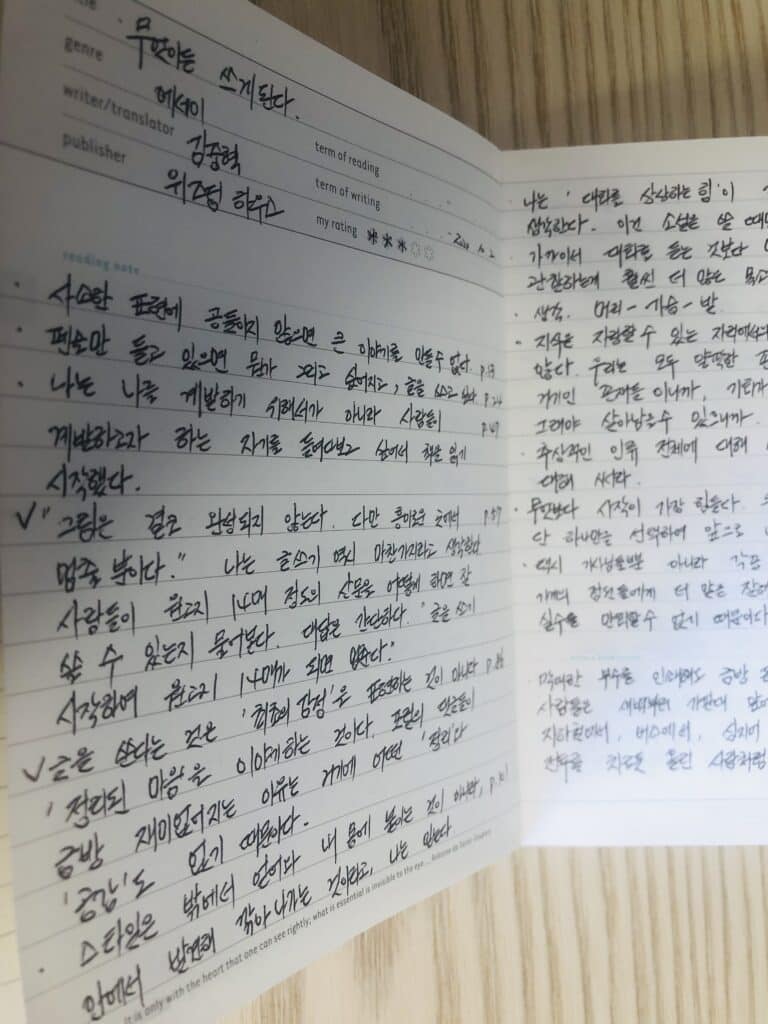 title
무엇이든 쓰게된다.
genre
에세이
writer/translator
김중혁
publisher
위즈덤 하우스
term of reading
term of writing
my rating
reading note
· 사소한 표현에 공들이지 않으면 큰 이야기를 만들 수 없다. p.13
· 펜으로만 들고 있으면 뭔가 그리고 싶어지고, 글을 쓰고 싶다. p.24
· 나는 나를 계발하기 위해서가 아니라 사람들이 p.47
계발하고자 하는 자기를 들여다보고 싶어서 책을 읽기
시작했다.
✓ "그림은 결코 완성되지 않는다. 다만 흥미로운 곳에서 p.57
멈출 뿐이다." 나는 글쓰기 역시 마찬가지라고 생각한다
사람들이 원고지 14매 정도의 산문을 어떻게 하면 잘
쓸 수 있는지 물어본다. 대답은 간단하다. "글을 쓰기
시작하여 원고지 14매가 되면 멈춘다."
✓ 글을 쓴다는 것은 '최초의 감정'을 표현하는 것이 아니다 p.86
'정리된 마음'을 이야기하는 것이다. 포털의 댓글들이
금방 재미없어지는 이유는 거기에 어떤 '정리'나
'공감'도 없기 때문이다.
· 스타일은 밖에서 얻어와 내 몸에 붙이는 것이 아니라, p.101
안에서 발견해 깎아 나가는 것이라고, 나는 믿는다
It is only with the heart that one can see rightly; what is essential is invisible to the eye. _ Antoine de Saint-Exupery
나는 '대화를 상상하는 힘'이
생각한다. 이건 소설을 쓸 때
가까이서 대화를 듣는 것보다
관찰하는게 훨씬 더 많은
· 생각. 머리 - 가슴 - 발
· 지식은 자랑할 수 있는 자리에서
많다. 우리는 모두 얄팍한
거기인 존재들이니까,
그래야 살아남을 수 있으니까.
· 추상적인 인류 전체에 대해
대해 써라.
· 무엇보다 시작이 가장 힘들다.
단 하나만을 선택하여 앞으로
· 역시 가사님들뿐 아니라 각종
실수를 만회할 수 없기 때문이다
사람들은
지하철에서, 버스에서, 심지어